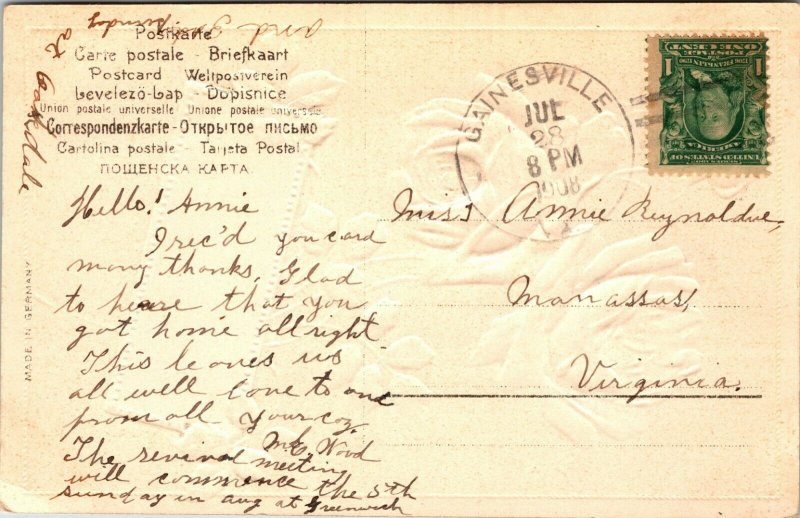 Postkarte
Carte postale - Briefkaart
Postcard Weltpostverein
Levelezö-Lap - Dopisnice
Union postale universelle Unione postale universale
Correspondenzkarte - Открытое письмо
Cartolina postale - Tarjeta Postal
ПОЩЕНСКА КАРТА
MADE IN GERMANY
GAINESVILLE
JUL
28
8 PM
1908
VA.
POSTAGE
ONE CENT
1 1
AMERICA
UNITED STATES OF
Miss Annie
Manassas,
Virginia.
Hello! Annie
I rec'd you card
many thanks, Glad
to heare that you
got home all right
This leaves us
all well love to one
from all your coz.
M.E. Wood
The revival meeting
will commence the 5th
sunday in aug at Greenwich
and
Sunday
at